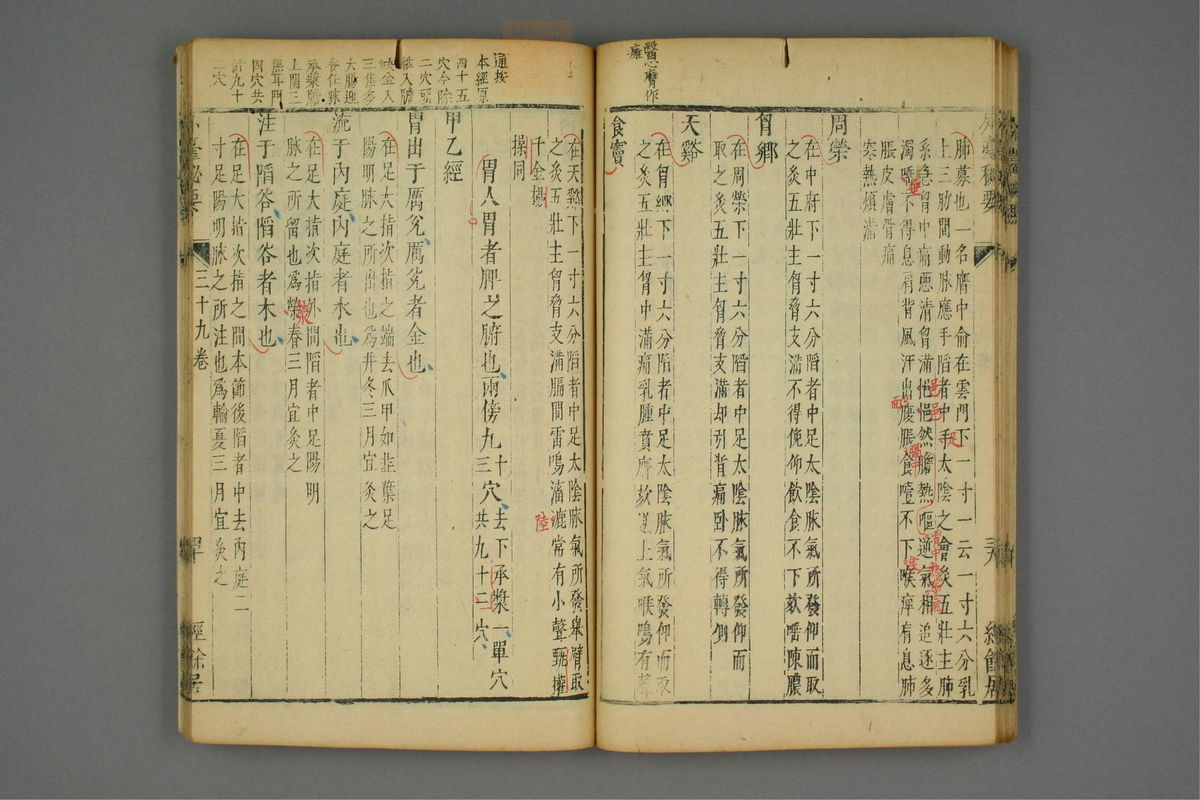 醫心膺作
癰
肺募也一名膺中俞在雲門下一寸一云一寸六分乳
上三肋間動脉應手陷者中手太陰之會灸五壯主肺
系急胷中痛惡清胷滿悒悒然膽熱嘔逆氣相追逐多
濁唾不得息肩背風汗出腹脹食噎不下喉痺肩息肺
脹皮膚骨痛
寒熱煩滿
周榮
在中府下一寸六分陷者中足太陰脉氣所發仰而取
之灸五壯主胷脅支滿不得俛仰飲食不下欬唾陳膿
胷鄉
在周榮下一寸六分陷者中足太陰脉氣所發仰而
取之灸五壯主胷脅支滿却引背痛卧不得轉側
天谿
在胷鄉下一寸六分陷者中足太陰脉氣所發仰而取
之灸五壯主胷中滿痛乳腫賁膺欬逆上氣喉鳴有聲
食竇
通按
本經原
四十五
穴今除
二穴
入膽
入
三焦多
大腸迎
香任脉
承漿膽
上關三
焦耳門
四穴共
計九十
二穴
在天谿下一寸六分陷者中足太陰脉氣所發舉臂取
之灸五壯主胷脅支滿膈間雷鳴滀漉常有小聲甄權
千金楊
操同
胃人胃者脾之腑也兩傍九十三穴去下承漿一單穴共九十二穴
甲乙經
胃出于厲兌厲兌者金也
在足大指次指之端去爪甲如韭葉足
陽明脉之所出也爲井冬三月宜灸之
流于內庭內庭者水也
在足大指次指外間陷者中足陽明
脉之所留也爲榮春三月宜灸之
注于陷谷陷谷者木也
在足大指次指之間本節後陷者中去內庭二
寸足陽明脉之所注也爲輸夏三月宜灸之
外臺祕要
三十九卷
經餘居